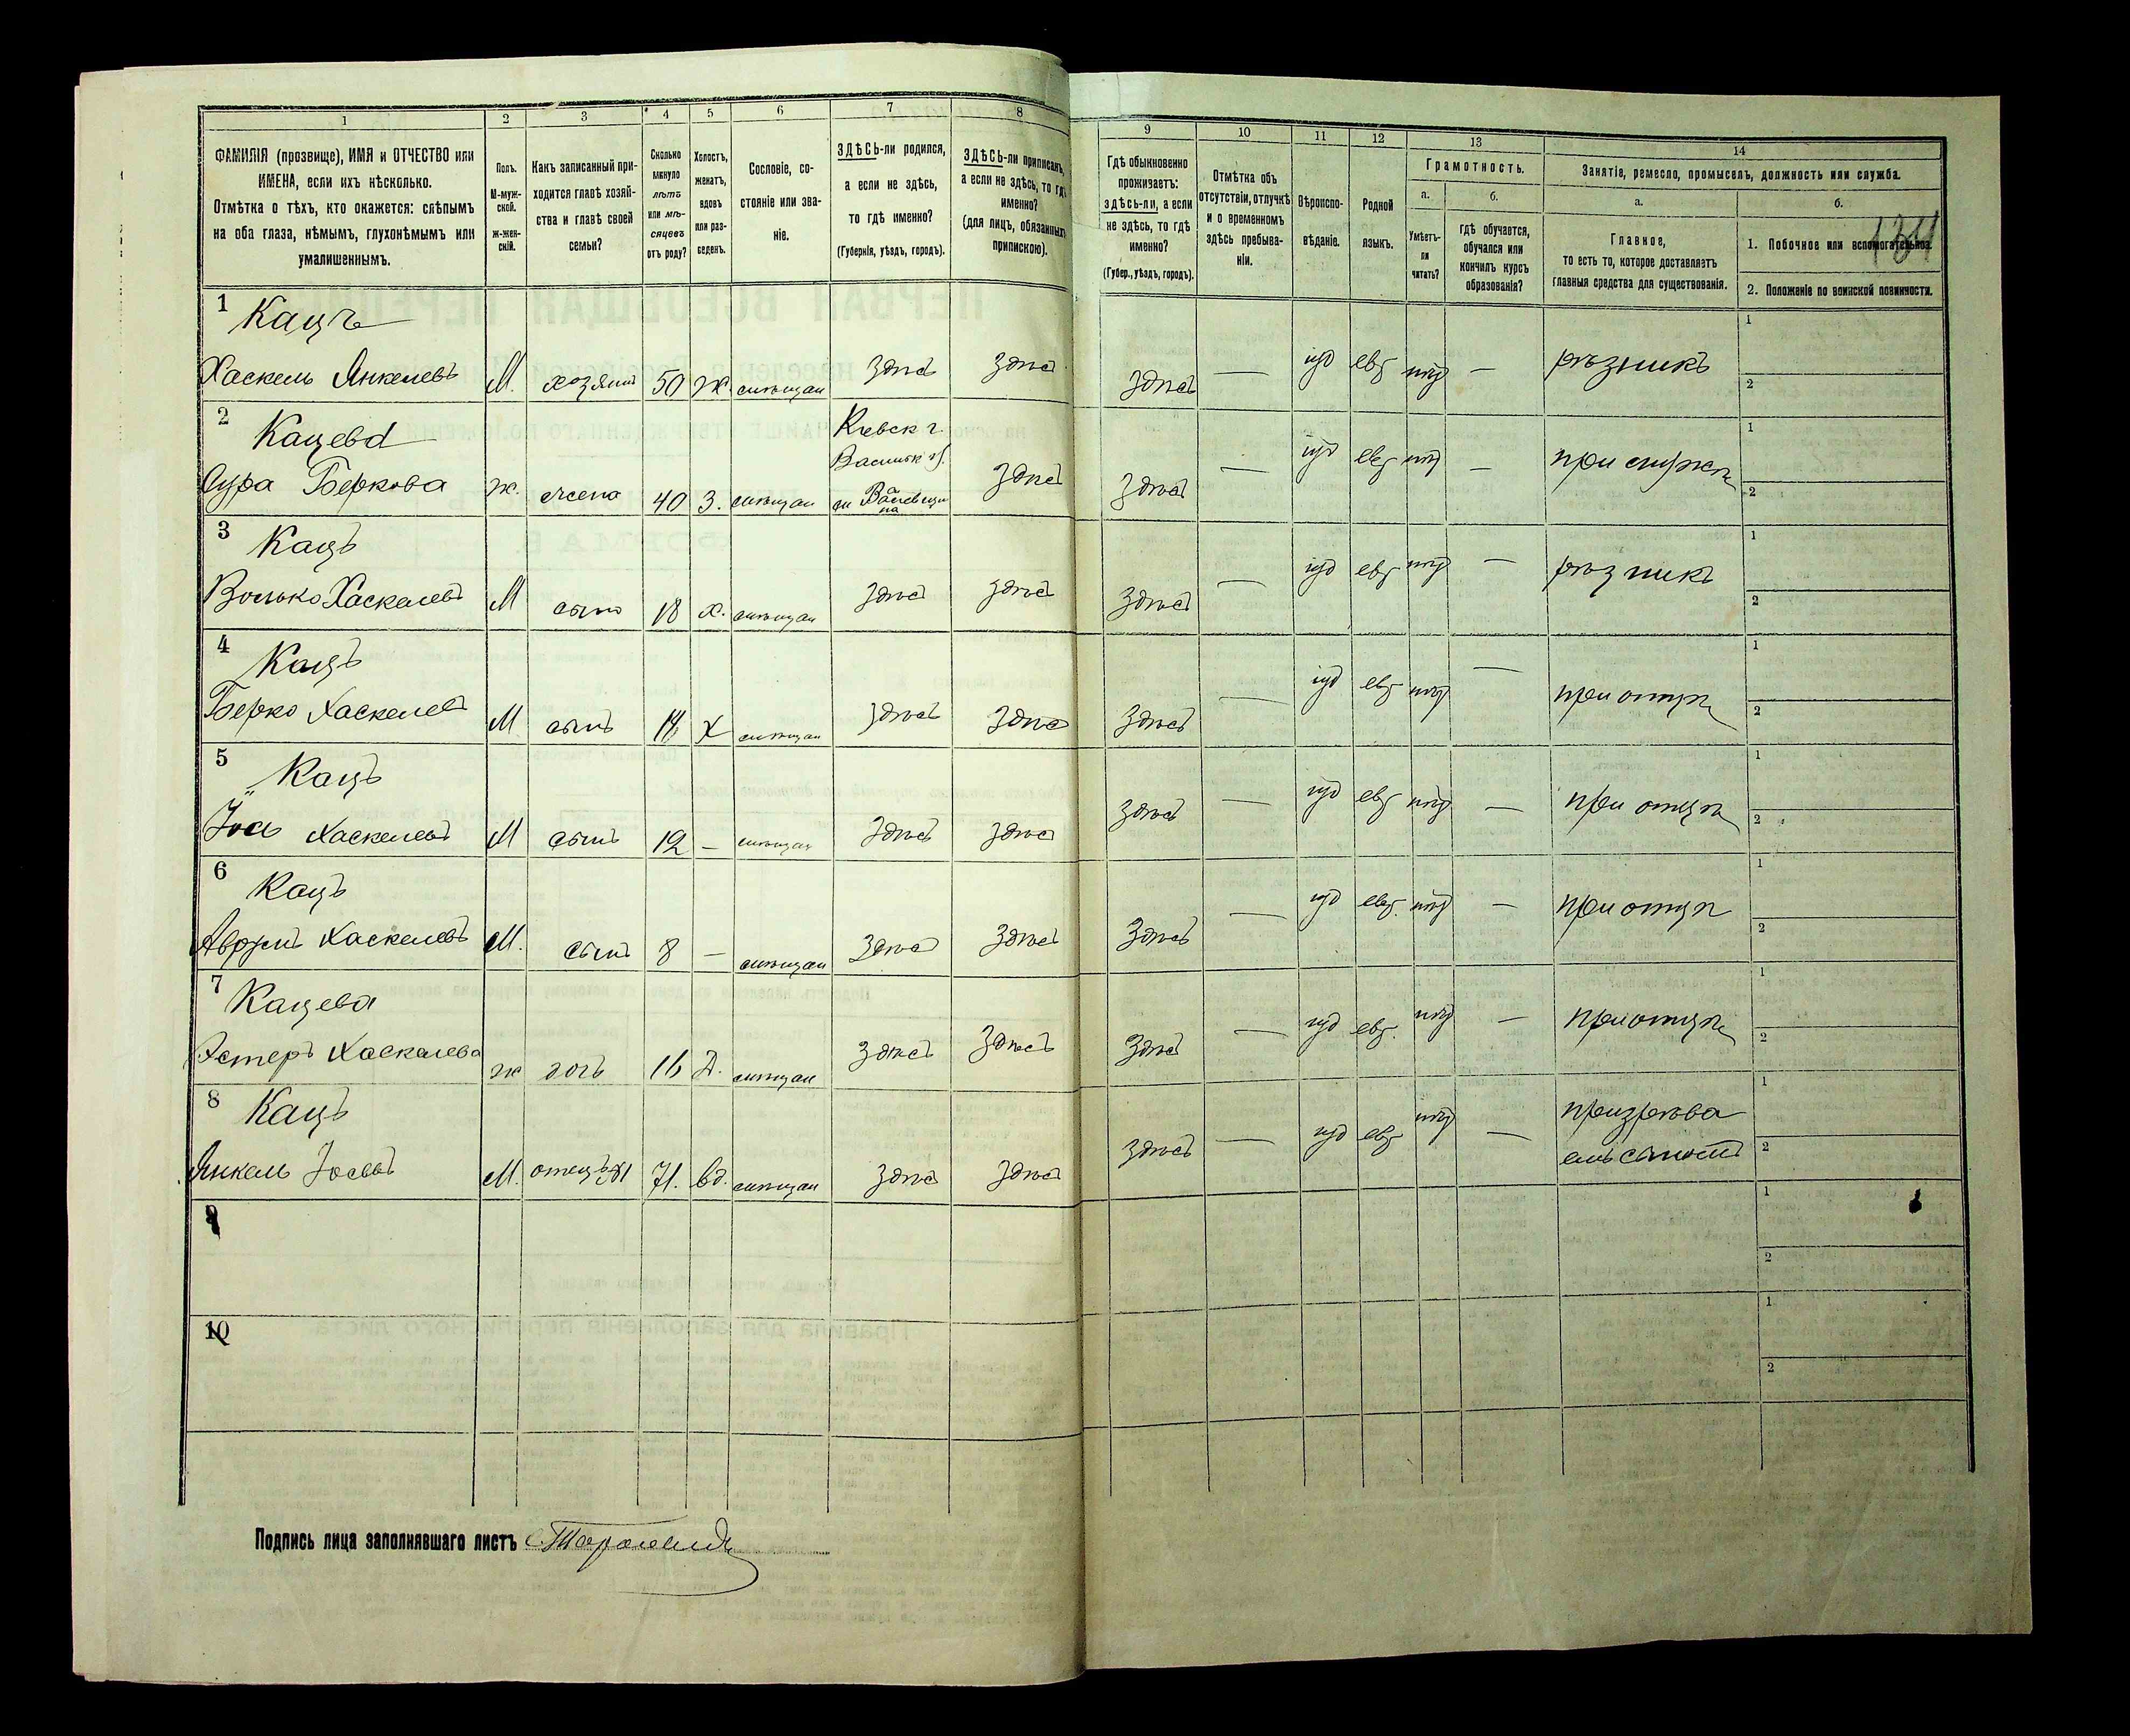 1 2 3 4 5 6 7 8
ФАМИЛІЯ (прозвище), ИМЯ и ОТЧЕСТВО или
ИМЕНА, если ихъ нѣсколько.
Отмѣтка о тѣхъ, кто окажется: слѣпымъ
на оба глаза, нѣмымъ, глухонѣмымъ или
умалишеннымъ.
Полъ.
М-муж-
ской.
ж-жен-
скій.
Какъ записанный при-
ходится главѣ хозяй-
ства и главѣ своей
семьи?
Сколько
минуло
лѣтъ
или мѣ-
сяцевъ
отъ роду?
Холостъ,
женатъ,
вдовъ
или раз-
веденъ.
Сословіе, со-
стояніе или зва-
ніе.
ЗДѢСЬ-ли родился,
а если не здѣсь,
то гдѣ именно?
(Губернія, уѣздъ, городъ).
ЗДѢСЬ-ли приписанъ,
а если не здѣсь, то гдѣ
именно?
(для лицъ, обязанныхъ
припискою).
9 10 11 12 13 14
Гдѣ обыкновенно
проживаетъ:
здѣсь-ли, а если
не здѣсь, то гдѣ
именно?
(Губер., уѣздъ, городъ).
Отмѣтка объ
отсутствіи, отлучкѣ
и о временномъ
здѣсь пребыва-
ніи.
Вѣроиспо-
вѣданіе.
Родной
языкъ.
Грамотность.
а.
Умѣетъ-
ли
читать?
б.
гдѣ обучается,
обучался или
кончилъ курсъ
образованія?
Занятіе, ремесло, промыселъ, должность или служба.
а.
Главное,
то есть то, которое доставляетъ
главныя средства для существованія.
б.
1. Побочное или вспомогательное.
2. Положеніе по воинской повинности.
1 Кацъ
Хаскель Янкелевъ М. хозяинъ 50 ж. мѣщан здѣсь здѣсь здѣсь — іуд евр — рѣзникъ 1 2
2 Кацева
Сура Беркова ж. жена 40 З. мѣщан
Кіевск г.
Васильк у.
здѣсь здѣсь — іуд евр — при мужѣ 1 2
3 Кацъ
Волько Хаскелевъ М сынъ 18 х. мѣщан здѣсь здѣсь здѣсь — іуд евр — рѣзникъ 1 2
4 Кацъ
Берко Хаскелевъ М сынъ Х мѣщан здѣсь здѣсь здѣсь — іуд евр — при отцѣ 1 2
5 Кацъ
Хаскелевъ М сынъ 12 — мѣщан здѣсь здѣсь здѣсь — іуд евр — при отцѣ 1 2
6 Кацъ
Хаскелевъ М. сынъ 8 — мѣщан здѣсь здѣсь здѣсь — іуд евр. — при отцѣ 1 2
7 Кацева
Эстеръ Хаскелева ж дочь 16 Д. мѣщан здѣсь здѣсь здѣсь — іуд евр. — при отцѣ 1 2
8 Кацъ
Янкель Іосевъ М. отецъ 71. вд. мѣщан здѣсь здѣсь здѣсь — іуд евр — 1 2
9 1 2
10 1 2
Подпись лица заполнявшаго листъ